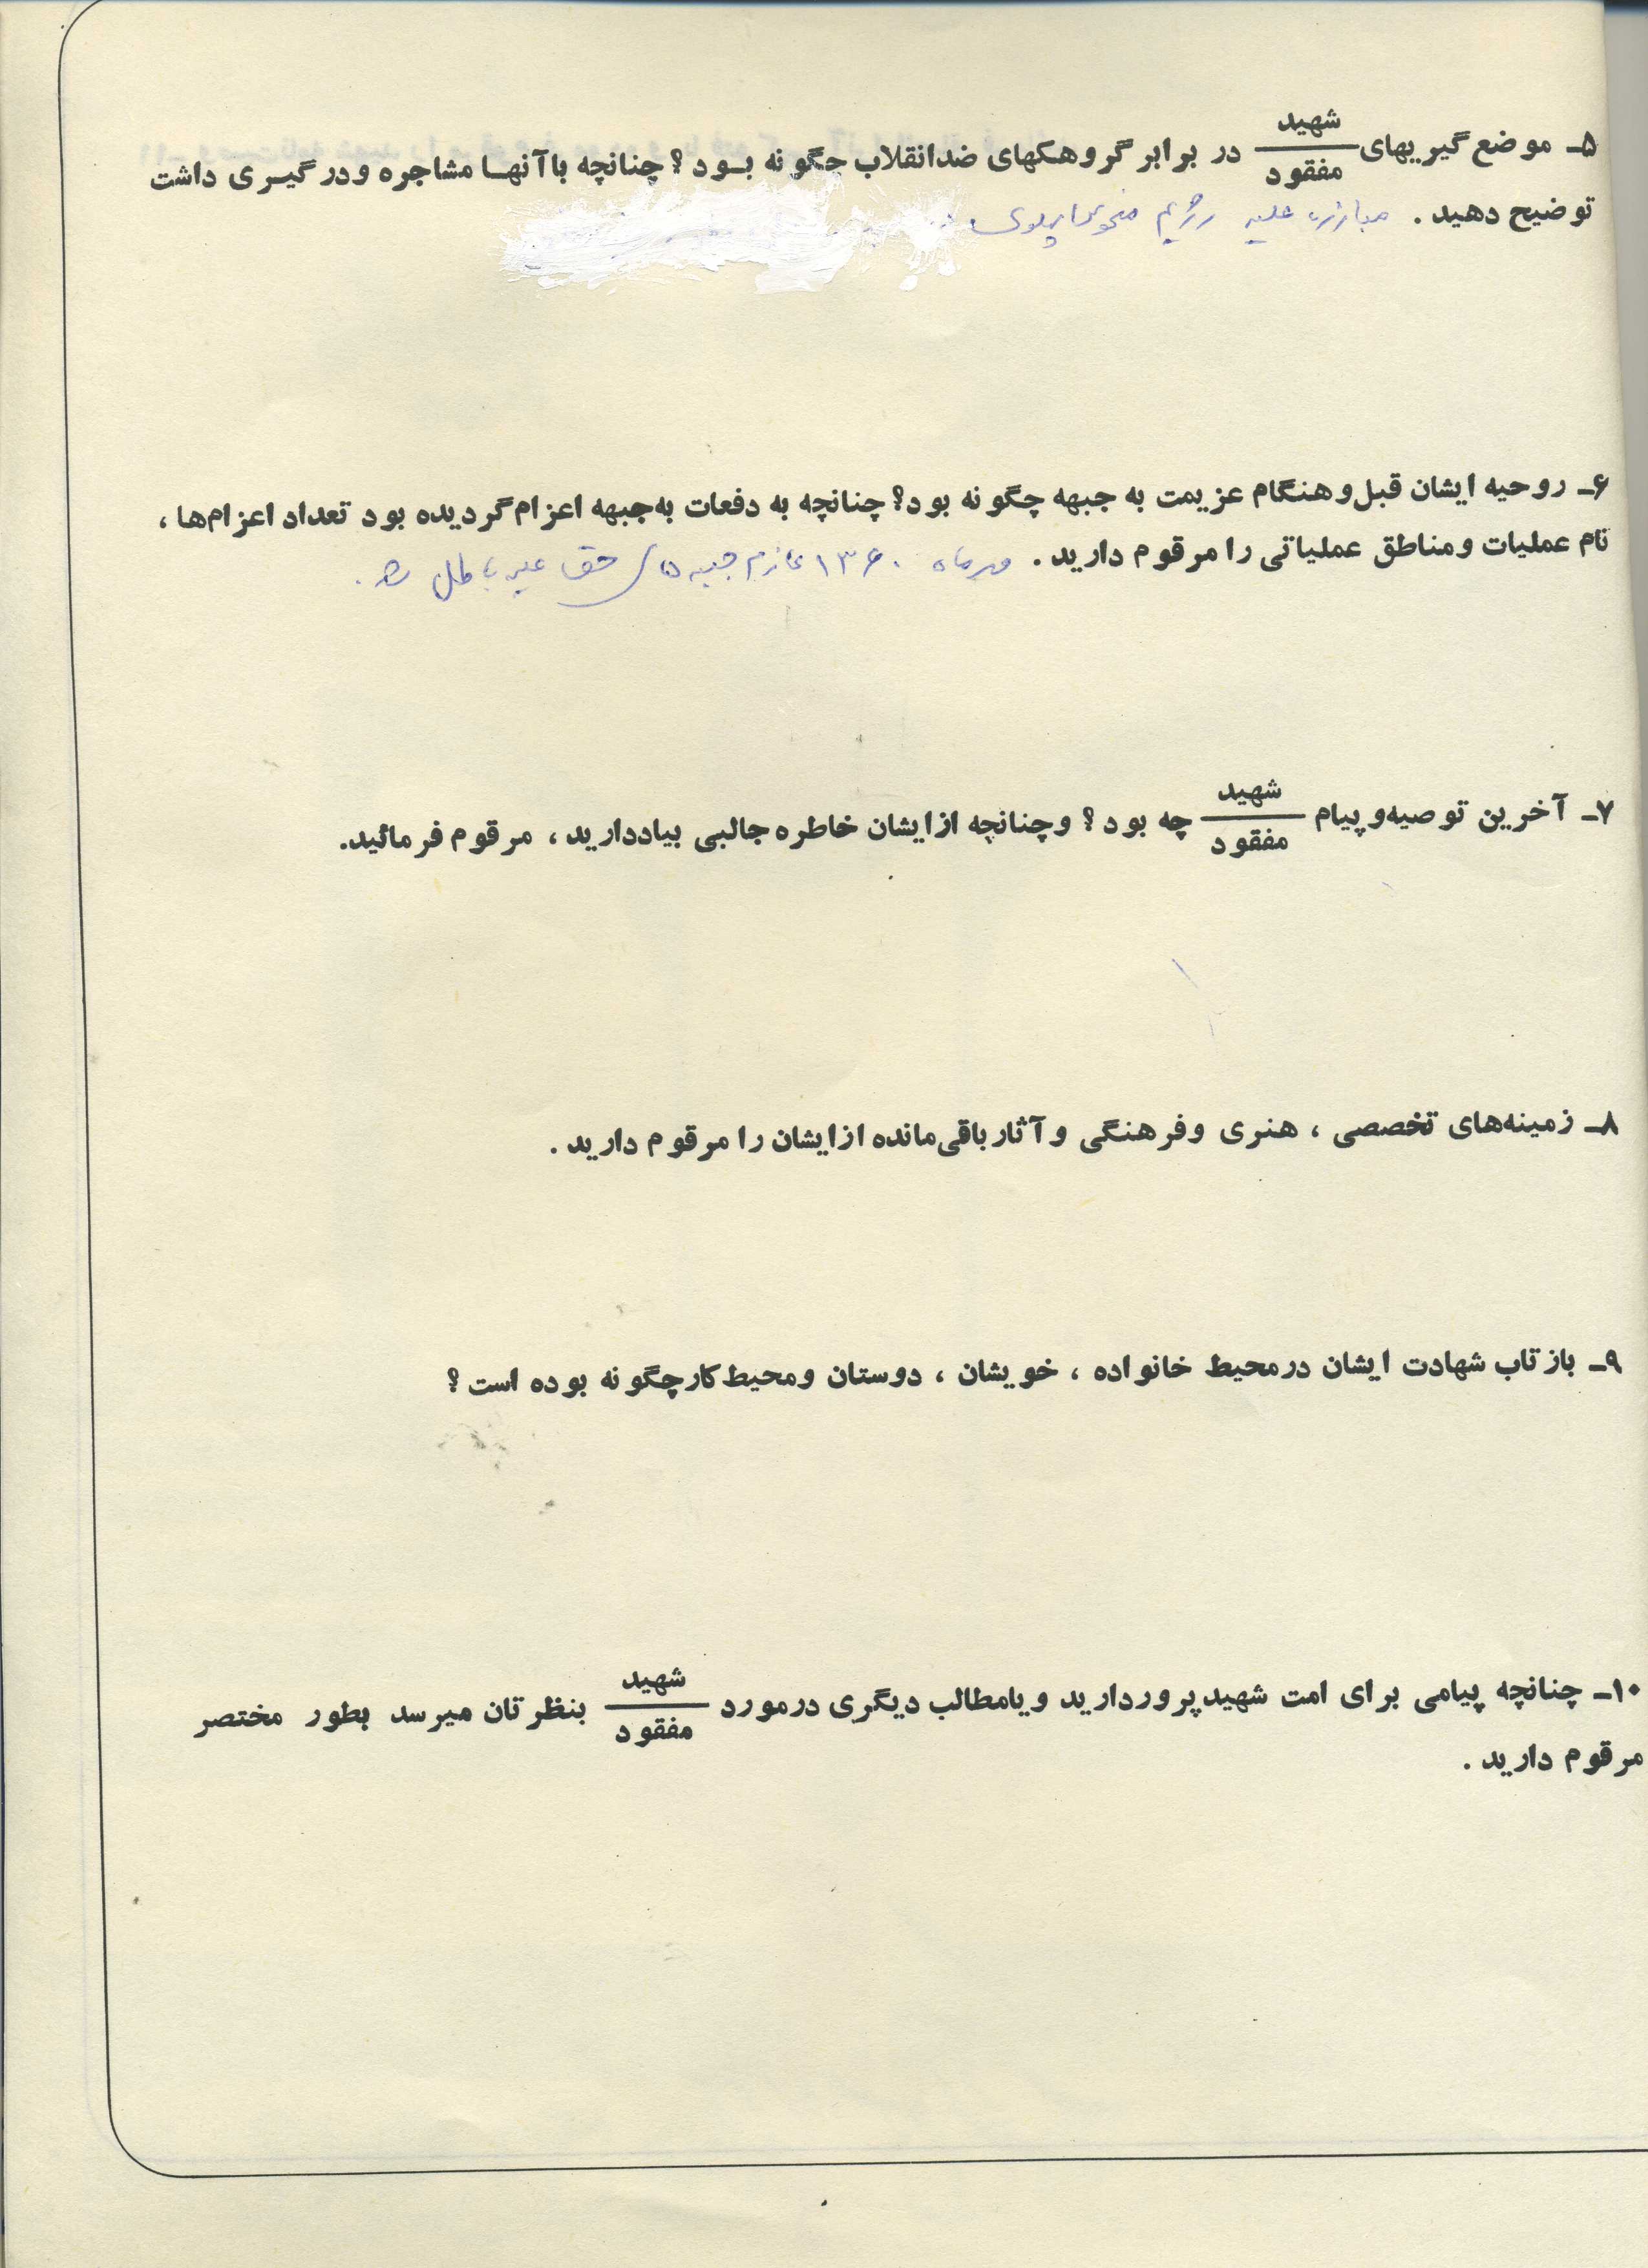 ۵ـ موضع گیریهای شهید/مفقود در برابر گروهکهای ضدانقلاب چگونه بـود ؟ چنانچه با آنهـا مشاجره و درگیـری داشت
توضیح دهید . مبارزه علیه رژیم منحوس پهلوی.
۶ـ روحیه ایشان قبل و هنگام عزیمت به جبهه چگونه بود؟ چنانچه به دفعات به‌جبهه اعزام گردیده بود تعداد اعزام‌ها ،
نام عملیات و مناطق عملیاتی را مرقوم دارید . مهرماه ۱۳۶۰ عازم جبهه های حق علیه باطل شد .
۷ـ آخرین توصیه و پیام شهید/مفقود چه بود ؟ و چنانچه از ایشان خاطره جالبی بیاد دارید ، مرقوم فرمائید.
۸ـ زمینه‌های تخصصی ، هنری و فرهنگی و آثار باقی‌مانده از ایشان را مرقوم دارید .
۹ـ بازتاب شهادت ایشان در محیط خانواده ، خویشان ، دوستان و محیط کار چگونه بوده است ؟
۱۰ـ چنانچه پیامی برای امت شهیدپرور دارید و یا مطالب دیگری در مورد شهید/مفقود بنظرتان میرسد بطور مختصر
مرقوم دارید .